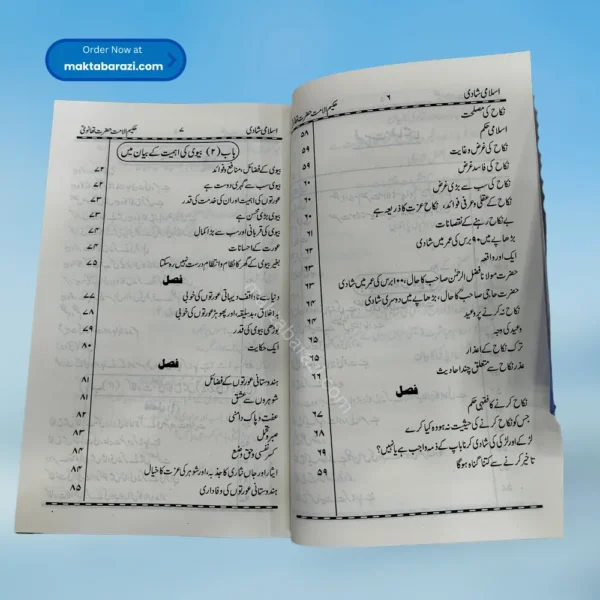 Order Now at
maktabarazi.com
اسلامی شادی ۶ حکیم الامت حضرت
نکاح کی مصلحت ۵۸
اسلامی حکم
نکاح کی غرض و غایت ۵۹
نکاح کی فاسد غرض ۵۹
نکاح کی سب سے بڑی غرض ۶۰
نکاح کے عقلی و عرفی فوائد، نکاح عزت کا ذریعہ ہے ۶۰
بے نکاح رہنے کے نقصانات ۶۱
بڑھاپے میں ۹۰ برس کی عمر میں شادی ۶۲
ایک اور واقعہ ۶۳
حضرت مولانا فضل الرحمٰن صاحب کا حال، ۱۰۰ برس کی عمر میں شادی ۶۳
حضرت حاجی صاحب کا حال، بڑھاپے میں دوسری شادی ۶۴
نکاح نہ کرنے پر وعید ۶۴
وعید کی وجہ ۶۵
ترک نکاح کے اعذار ۶۵
عذر نکاح سے متعلق چند احادیث ۶۶
فصل
نکاح کرنے کا فقہی حکم ۶۷
جس کو نکاح کرنے کی حیثیت نہ ہو وہ کیا کرے ۶۸
لڑکے اور لڑکی کی شادی کرنا باپ کے ذمہ واجب ہے یا نہیں؟ ۶۹
تاخیر کرنے سے کتنا گناہ ہوگا ۵۹
اسلامی شادی ۷ حکیم الامت حضرت تھانویؒ
باب (۲) بیوی کی اہمیت کے بیان میں
بیوی کے فضائل، منافع و فوائد ۷۲
بیوی سب سے گہری دوست ہے ۷۲
عورتوں کی اہمیت اور ان کی خدمت کی قدر ۷۳
بیوی بڑی محسن ہے ۷۳
بیوی کی قربانی اور سب سے بڑا کمال ۷۳
عورت کے احسانات ۷۴
بغیر بیوی کے گھر کا نظام و انتظام درست نہیں رہ سکتا ۷۵
فصل
دنیا سے ناواقف دیہاتی عورتوں کی خوبی ۷۷
بداخلاق، بدسلیقہ، اور پھوہڑ عورتوں کی خوبی ۷۸
بوڑھی بیوی کی قدر ۷۹
ایک حکایت ۸۰
فصل
ہندوستانی عورتوں کے فضائل ۸۱
شوہروں سے عشق ۸۱
عفت و پاک دامنی ۸۲
صبر و تحمل ۸۳
کسر نفسی و حق وضع ۸۳
ایثار اور جاں نثاری کا جذبہ، اور شوہر کی عزت کا خیال ۸۴
ہندوستانی عورتوں کی وفاداری ۸۵
maktabarazi.com